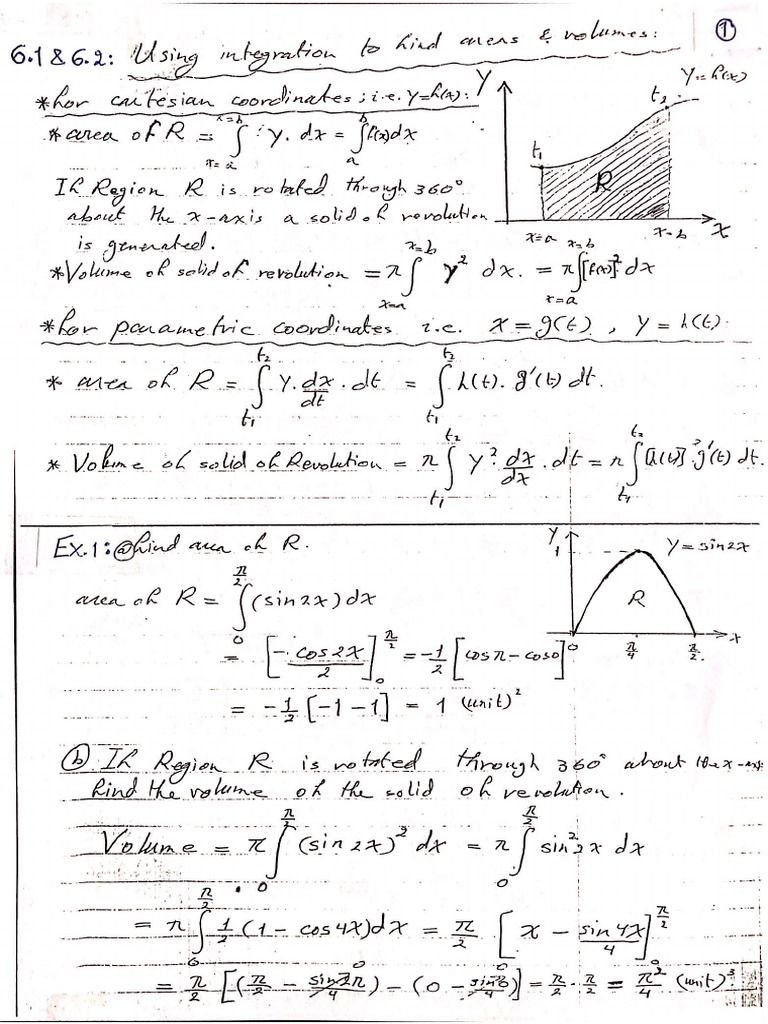 ①
6.1 & 6.2: Using integration to find areas & volumes:
* for cartesian coordinates; i.e. y=f(x):
* area of R = ∫_{x=a}^{x=b} y. dx = ∫_a^b f(x)dx
If Region R is rotated through 360°
about the x-axis a solid of revolution
is generated.
Y
y=f(x)
t₂
t₁
R
x=a
x=b
x
* Volume of solid of revolution = π ∫_{x=a}^{x=b} y² dx. = π ∫_{x=a}^{x=b} [f(x)]² dx
* for parametric coordinates i.e. x = g(t), y = f(t).
* area of R = ∫_{t₁}^{t₂} y. dx/dt . dt = ∫_{t₁}^{t₂} f(t). g'(t) dt.
* Volume of solid of Revolution = π ∫_{t₁}^{t₂} y². dx/dx . dt = π ∫_{t₁}^{t₂} [f(t)]². g'(t) dt.
Ex.1: ⓐ find area of R.
y
1
y = sin2x
R
0
π/4
π/2.
x
area of R = ∫_0^{π/2} (sin2x)dx
= [-cos2x/2]_0^{π/2} = -1/2 [cosπ - cos0]
= -1/2 [-1-1] = 1 (unit)²
ⓑ If Region R is rotated through 360° about the x-axis
find the volume of the solid of revolution.
Volume = π ∫_0^{π/2} (sin2x)² dx = π ∫_0^{π/2} sin²2x dx
= π ∫_0^{π/2} 1/2 (1 - cos4x)dx = π/2 [x - sin4x/4]_0^{π/2}
= π/2 [(π/2 - sin2π/4) - (0 - sin0/4)] = π/2 . π/2 = π²/4 (unit)³